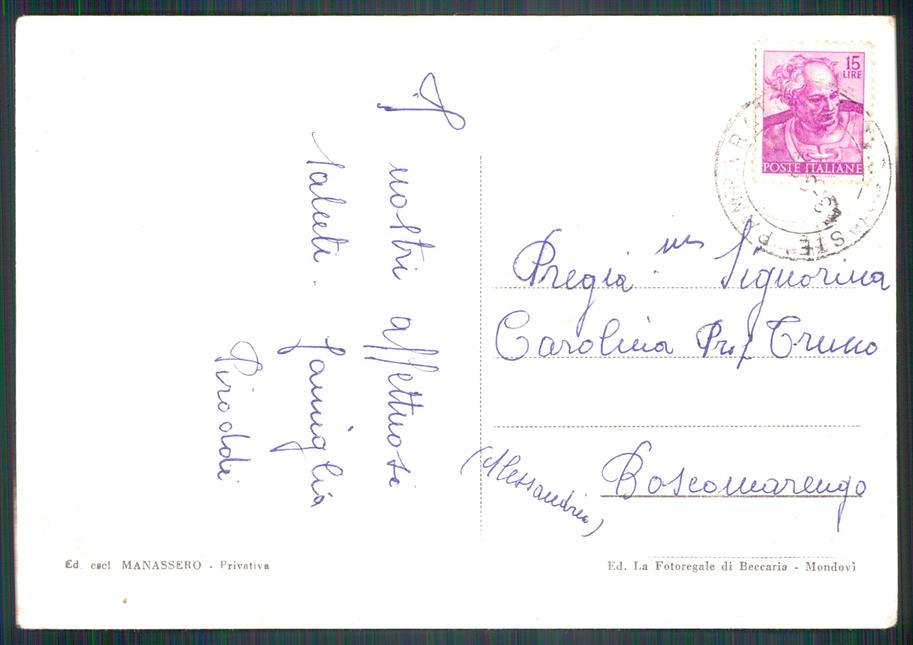 I nostri affettuosi
saluti. famiglia
Piroddi
15
LIRE
POSTE ITALIANE
Pregia. ma Signorina
Carolina Prof
Boscomarengo
(Alessandria)
Ed. escl MANASSERO - Privativa
Ed. La Fotoregale di Beccaria - Mondovì